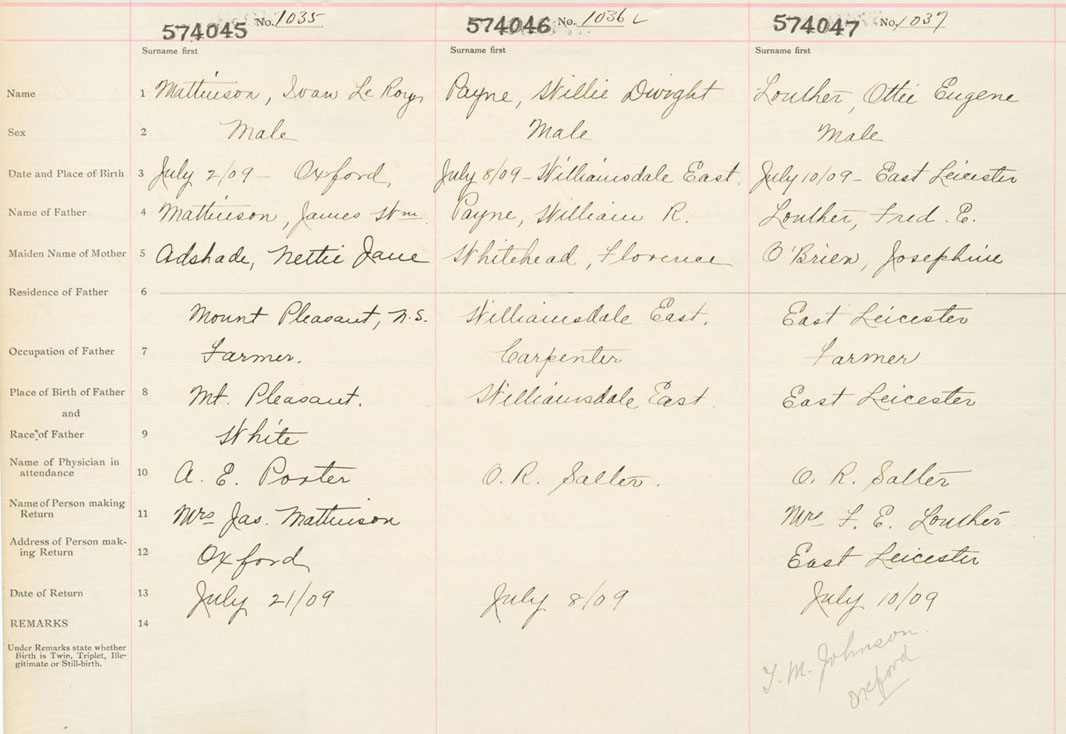 574045 No. 1035 574046 No. 1036 574047 No. 1037
Surname first Surname first Surname first
Name 1 Mattinson, Ivan Le Roy Payne, Willie Dwight Louther, Ottie Eugene
Sex 2 Male Male Male
Date and Place of Birth 3 July 2/09 - Oxford, July 8/09 - Williamsdale East. July 10/09 - East Leicester
Name of Father 4 Mattinson, James Wm. Payne, William R. Louther, Fred. E.
Maiden Name of Mother 5 Adshade, Nettie Jane Whitehead, Florence O'Brien, Josephine
Residence of Father 6
Mount Pleasant, N.S. Williamsdale East. East Leicester
Occupation of Father 7 Farmer. Carpenter Farmer
Place of Birth of Father 8 Mt. Pleasant. Williamsdale East East Leicester
and
Race of Father 9 White
Name of Physician in
attendance 10 A. E. Porter O. R. Salter. O. R. Salter
Name of Person making
Return 11 Mrs Jas. Mattinson Mrs F. E. Louther
Address of Person mak-
ing Return 12 Oxford East Leicester
Date of Return 13 July 21/09 July 8/09 July 10/09
REMARKS 14
Under Remarks state whether
Birth is Twin, Triplet, Ille-
gitimate or Still-birth.
T. M. Johnson.
Oxford